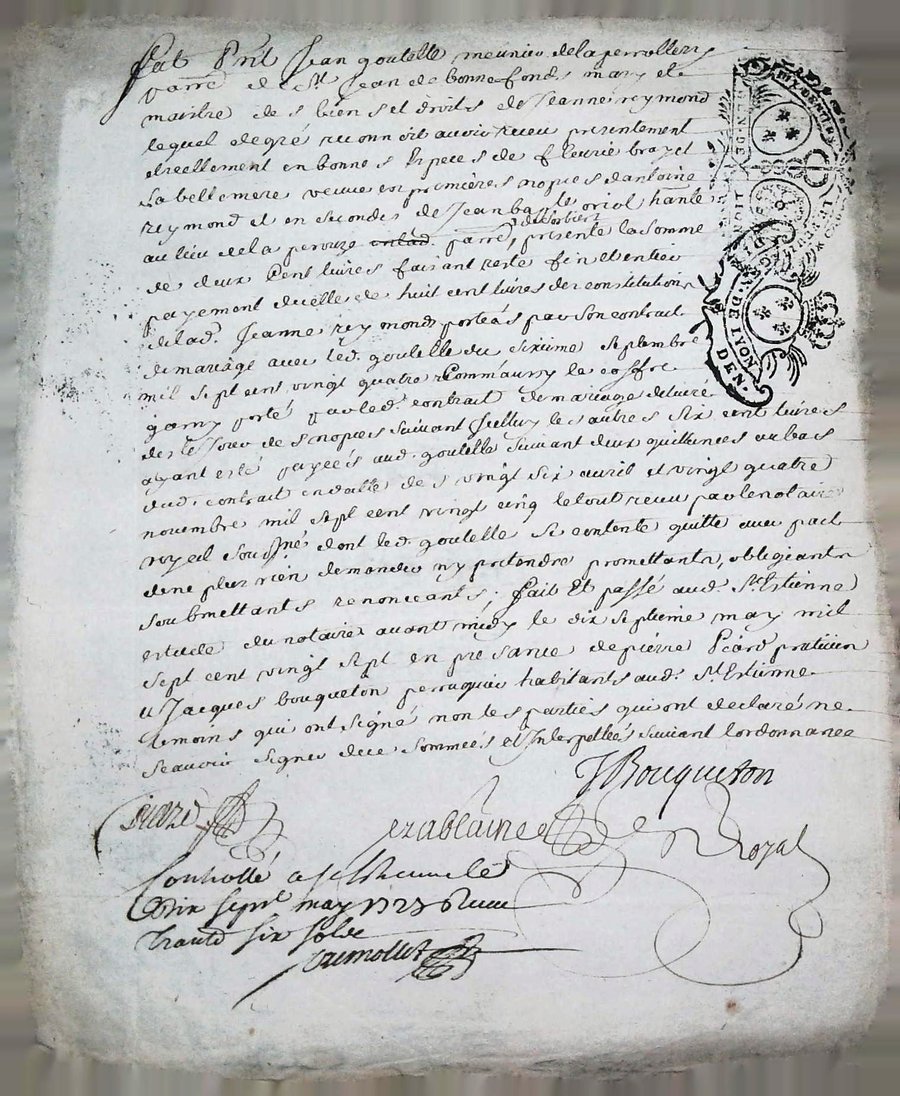 fut pnt Jean goutelle meunier de la perrollery
parre de St Jean de bonnefonds mary et
maistre des biens et droits de Jeanne reymond
lequel de gré reconnoit avoir receu presentement
et reellement en bonnes especes de fleurie brayet
sa bellemere veuve en premieres nopces d'antoine
reymond et en secondes de Jean bapte oriol hante
du Sorbiert
au lieu de la perouze parre, presente la somme
de deux cent livres faisant reste fin et entier
payement de celle de huit cent livres de constitution
de lad. Jeanne reymond portées par son contrait
de mariage avec led. goutelle du sixieme septembre
mil sept cent vingt quatre le coffre
garny porté par led. contrait de mariage delivré
des le jour de ses nopces suivant Jcelluy les autres six cent livres
ayant esté payées aud. goutelle suivant deux quittances au bas
dud. contrait en datte des vingt six avril et vingt quatre
novembre mil sept cent vingt cinq le tout receu par le notaire
royal sousné dont led. goutelle se contente quitte avec pact
de ne plus rien demander ny pretendre promettants, obligeants
soubmettants renonceants; fait et passé aud. St Estienne
estude du notaire avant midy le dix septieme may mil
sept cent vingt sept en presance de pierre Picard praticien
et Jacques bouqueton perruquier habitants aud. St Estienne
temoins qui ont signé non les parties qui ont declaré ne
scavoir signer de ce sommeés et Interpelleés suivant lordonnance
J Bouqueton
ezablaine Royal
Controllé a st Etienne le
Dix sept may 1727 Receu
vingt six sols
DEN. DE LYON